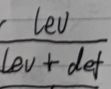 lev
lev + def